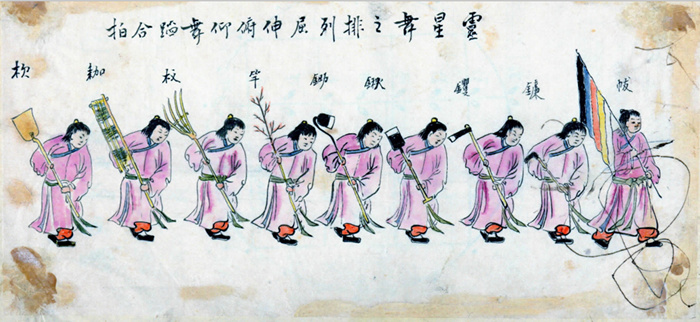 靈星舞之排列屈伸俯仰舞蹈合拍
帗 鐮 钁 鍬 鋤 竿 杈 耞 杴